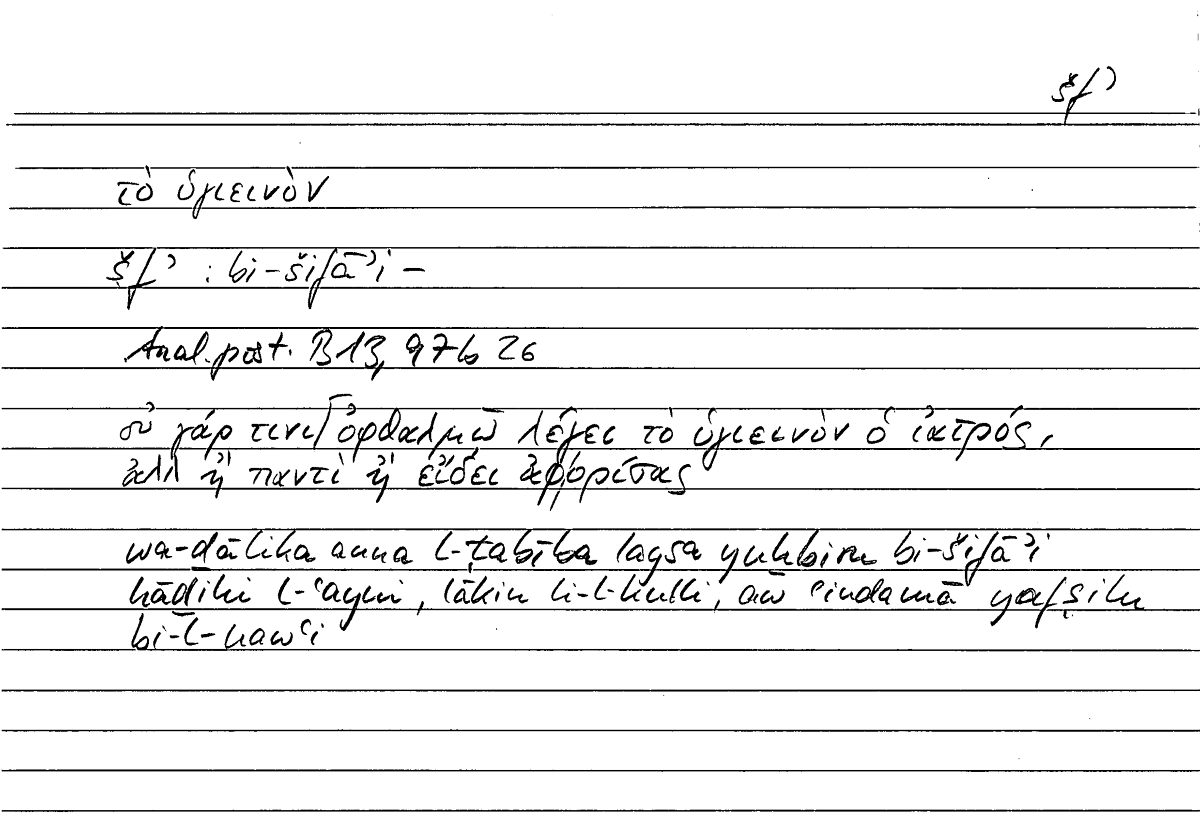 šfʾ
τὸ ὑγιεινὸν
šfʾ : bi-šifāʾi –
Anal. post. B13, 97b 26
οὐ γάρ τινι ὀφθαλμῷ λέγει τὸ ὑγιεινὸν ὁ ἰατρός,
ἀλλ ἢ παντὶ ἢ εἴδει ἀφορίσας
wa-ḏālika anna l-ṭabība laysa yuḫbiru bi-šifāʾi
hāḏihi l-ʿayni, lākin li-l-kulli, aw ʿindamā yafṣilu
bi-l-nawʿi